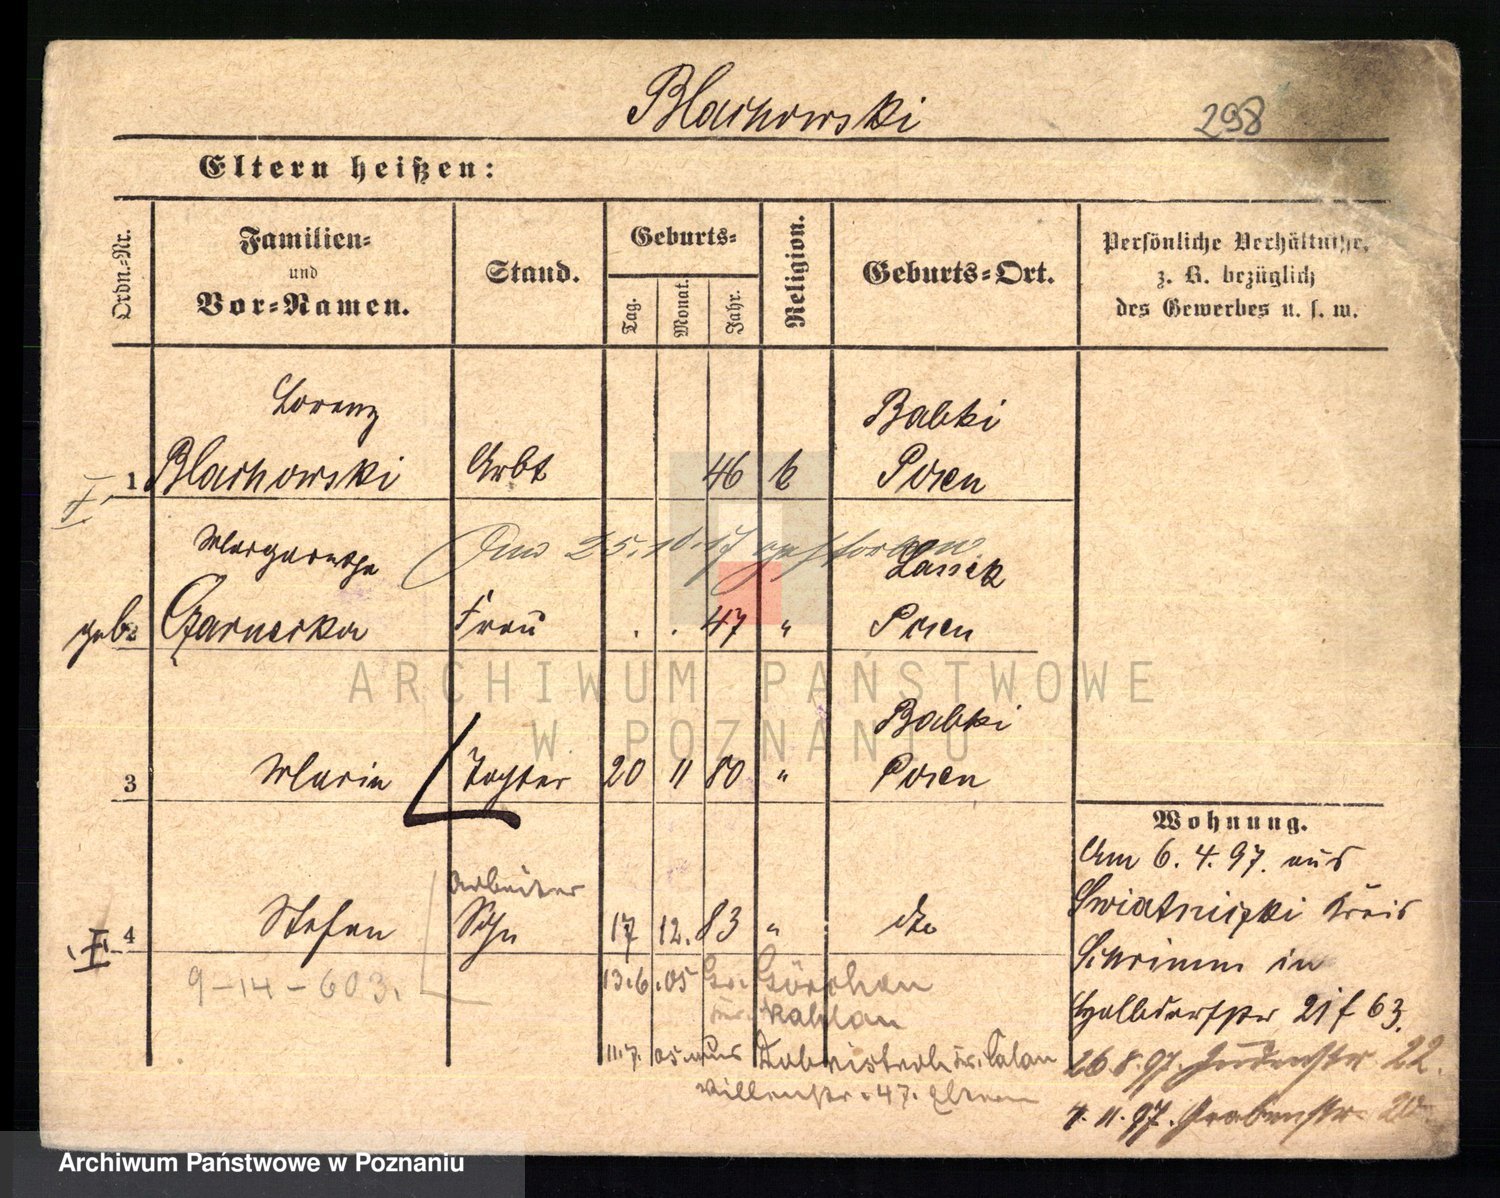 Blachowski
298
Eltern heißen:
Ordn.-Nr.
Familien-
und
Vor-Namen.
Stand.
Geburts-
Tag.
Monat.
Jahr.
Religion.
Geburts-Ort.
Persönliche Verhältnisse,
z. B. bezüglich
des Gewerbes u. s. w.
Lorenz
Babki
1 Blachowski Arbt 46 k Posen
I.
Margarethe
Am 25.10.17 gestorben
geb. Czarnecka Frau . . 47 " Posen
Babki
3 Marie Tochter 20 11 80 " Posen
Arbeiter
I. 4 Stefan Sohn 17 12. 83 " dto
9-14-603.
13.6.05 Gr. Görchen
11.7.05 aus
47. Eltern
Wohnung.
Am 6.4.97. aus
Swiatniczki Kreis
Schrimm in
Halbdorfstr 21 f 63.
26.8.97. 22.
4.11.97. Grabenstr. 20.
ARCHIWUM PAŃSTWOWE
W POZNANIU
Archiwum Państwowe w Poznaniu